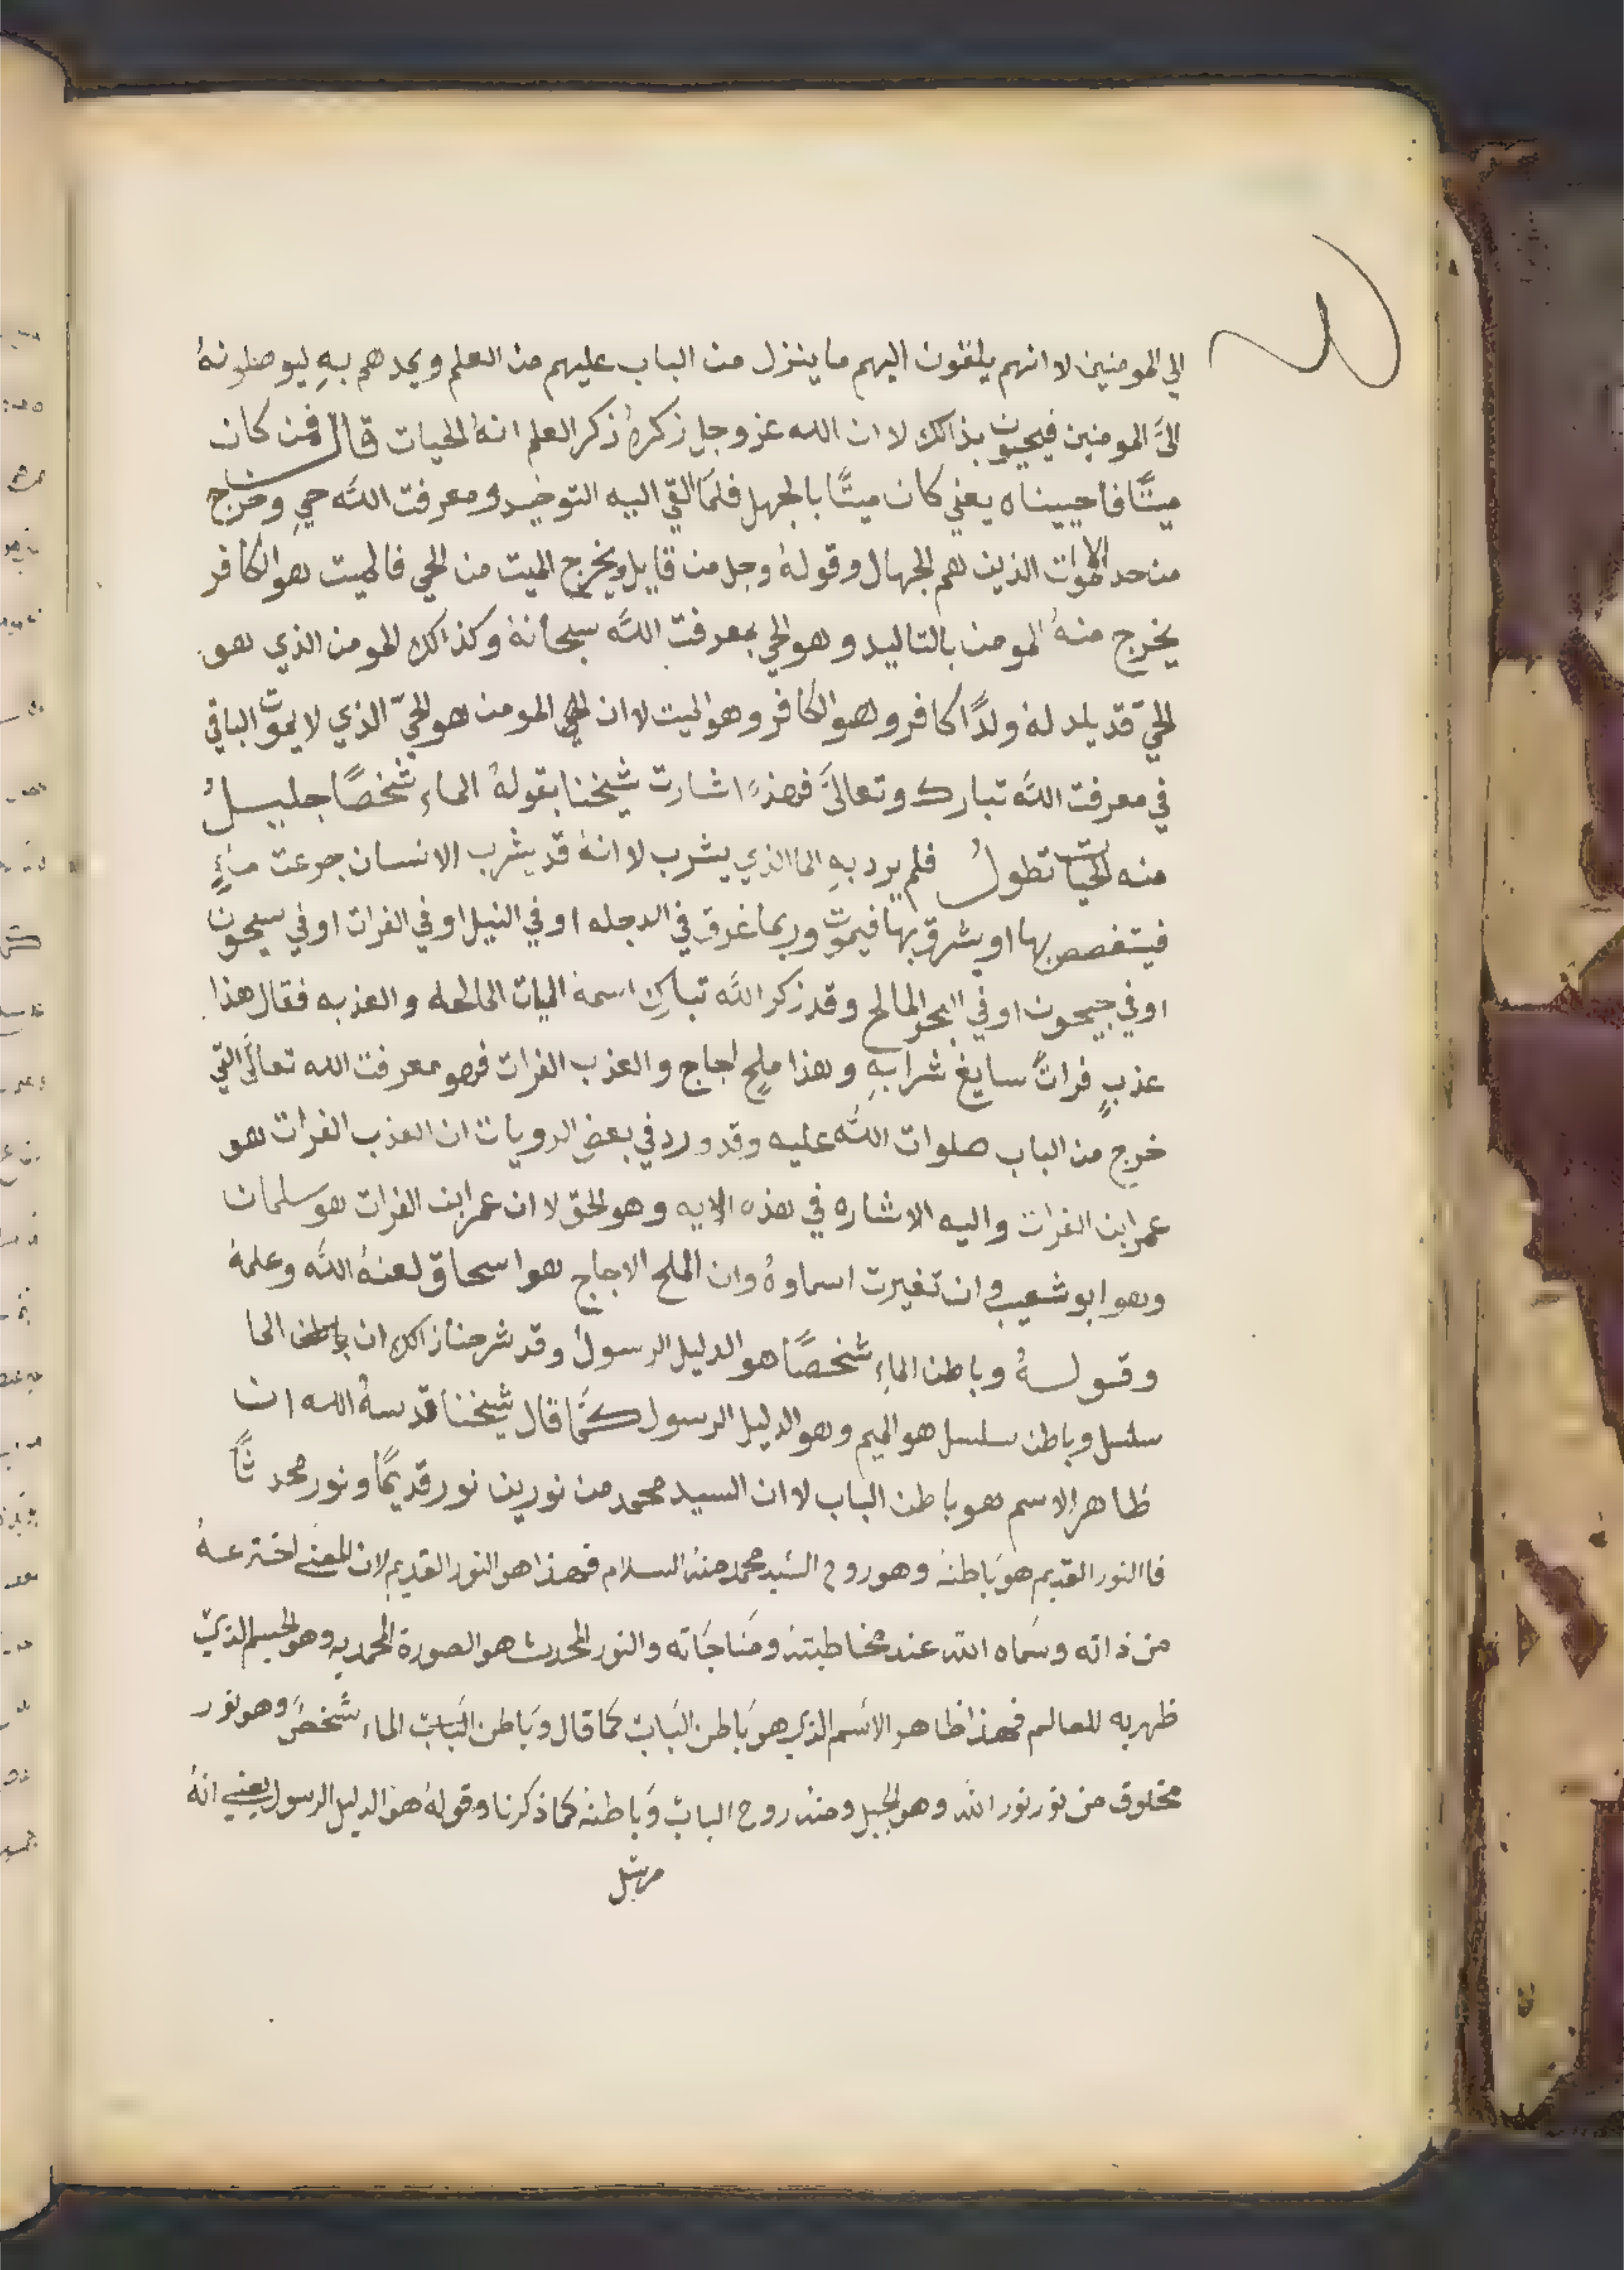 الي المومنين لاانهم يلقون اليهم ما ينزل من الباب عليهم من العلم ويمدهم بهِ ليوصلونهُ
الىَّ المومنين فيحيون بذالك لاان الله عز وجل ذكرهُ ذكر العلم انهُ الحيات قال فمن كان
ميتًا فاحييناه يعني كان ميتًا بالجهل فلمَّا القي اليه التوحيد ومعرفت اللَّه حيِ وخرج
من حد الاموات الذين هم الجهال وقولهُ وجل من قايل ويخرج الميت من الحي فالميت هو الكافر
يخرج منهُ المومن بالتاليد وهو الحي بمعرفت اللَّه سبحانهُ وكذالك المومن الذي هو
الحيّ قد يلد لهُ ولدًا كافر وهو الكافر وهو الميت لاان المومن هو الحيّ الذي لا يموت الباقي
في معرفت اللَّه تبارك وتعالىَّ فهذهِ اشارت شيخنا بقولهُ الماءِ شخصًا جليلُ
منه الحيات تطولُ فلم يرد بهِ الما الذي يشرب لاانهُ قد يشرب الانسان جرعت ماءٍ
فيتغصص بها او يشرق بها فيموت وربما غرق في الدجله او في النيل او في الفرات او في سيحون
او في جيحون او في البحر المالح وقد ذكر اللَّه تبارك اسمهُ الميات المالحه والعذبه فقال هذا
عذبٍ فراتً سايغ شرابهِ وهذا ملحٍ اجاج والعذب الفرات فهو معرفت الله تعالىَّ التي
خرج من الباب صلوات اللَّه عليه وقد ورد في بعض الرويات ان العذب الفرات هو
عمر ابن الفرات واليه الاشاره في هذه الايه وهو الحق لاان عمر ابن الفرات هو سلمان
وهو ابو شعيب وان تغيرت اسماوهُ وان الملح الاجاج هو اسحاق لعنهُ اللَّه وعلمهُ
وقولهُ وباطن الماءِ شخصًا هو الدليل الرسولُ وقد شرحنا ذالك ان باطن الما
سلسل وباطن سلسل هو الميم وهو الدليل الرسول كمَّا قال شيخنا قدسهُ الله ان
ظاهر الاسم هو باطن الباب لاان السيد محمد من نورين نور قديمًا ونور محدثًا
فا النور القديم هو باطنهُ وهو روح السَّيد محمد منهُ السلام فهذا هو النور القديم لان المعنى اخترعهُ
من ذاته وسمَاه اللَّه عند مخاطبتهُ ومنَاجَاته والنور المحدث هو الصورة المحمديه وهو الجسم الذي
ظهر به للعالم فهذا ظاهر الاسَم الذي هو بَاطن البَاب كما قال وبَاطن البَاب الماء شخصَ وهو نور
مخلوق من نور نور اللَّه وهو الجبل ومنهُ روح الباب وَباطنهُ كما ذكرنا وقولهُ هو الدليل الرسول يعني انهُ